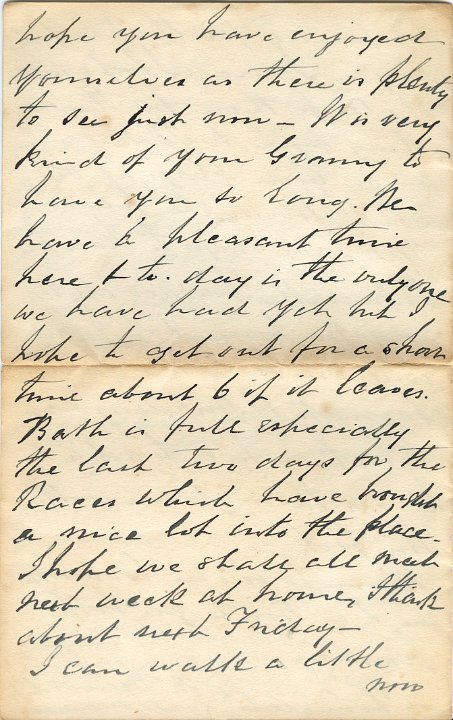 hope you have enjoyed
yourselves as there is plenty
to see just now - It is very
kind of your Granny to
have you so long. We
have a pleasant time
here & to-day is the only one
we have had yet but I
hope to get out for a short
time about 6 if it leaves.
Bath is full especially
the last two days for the
Races which have brought
a nice lot into the place.
I hope we shall all meet
next week at home, I think
about next Friday -
I can walk a little
now